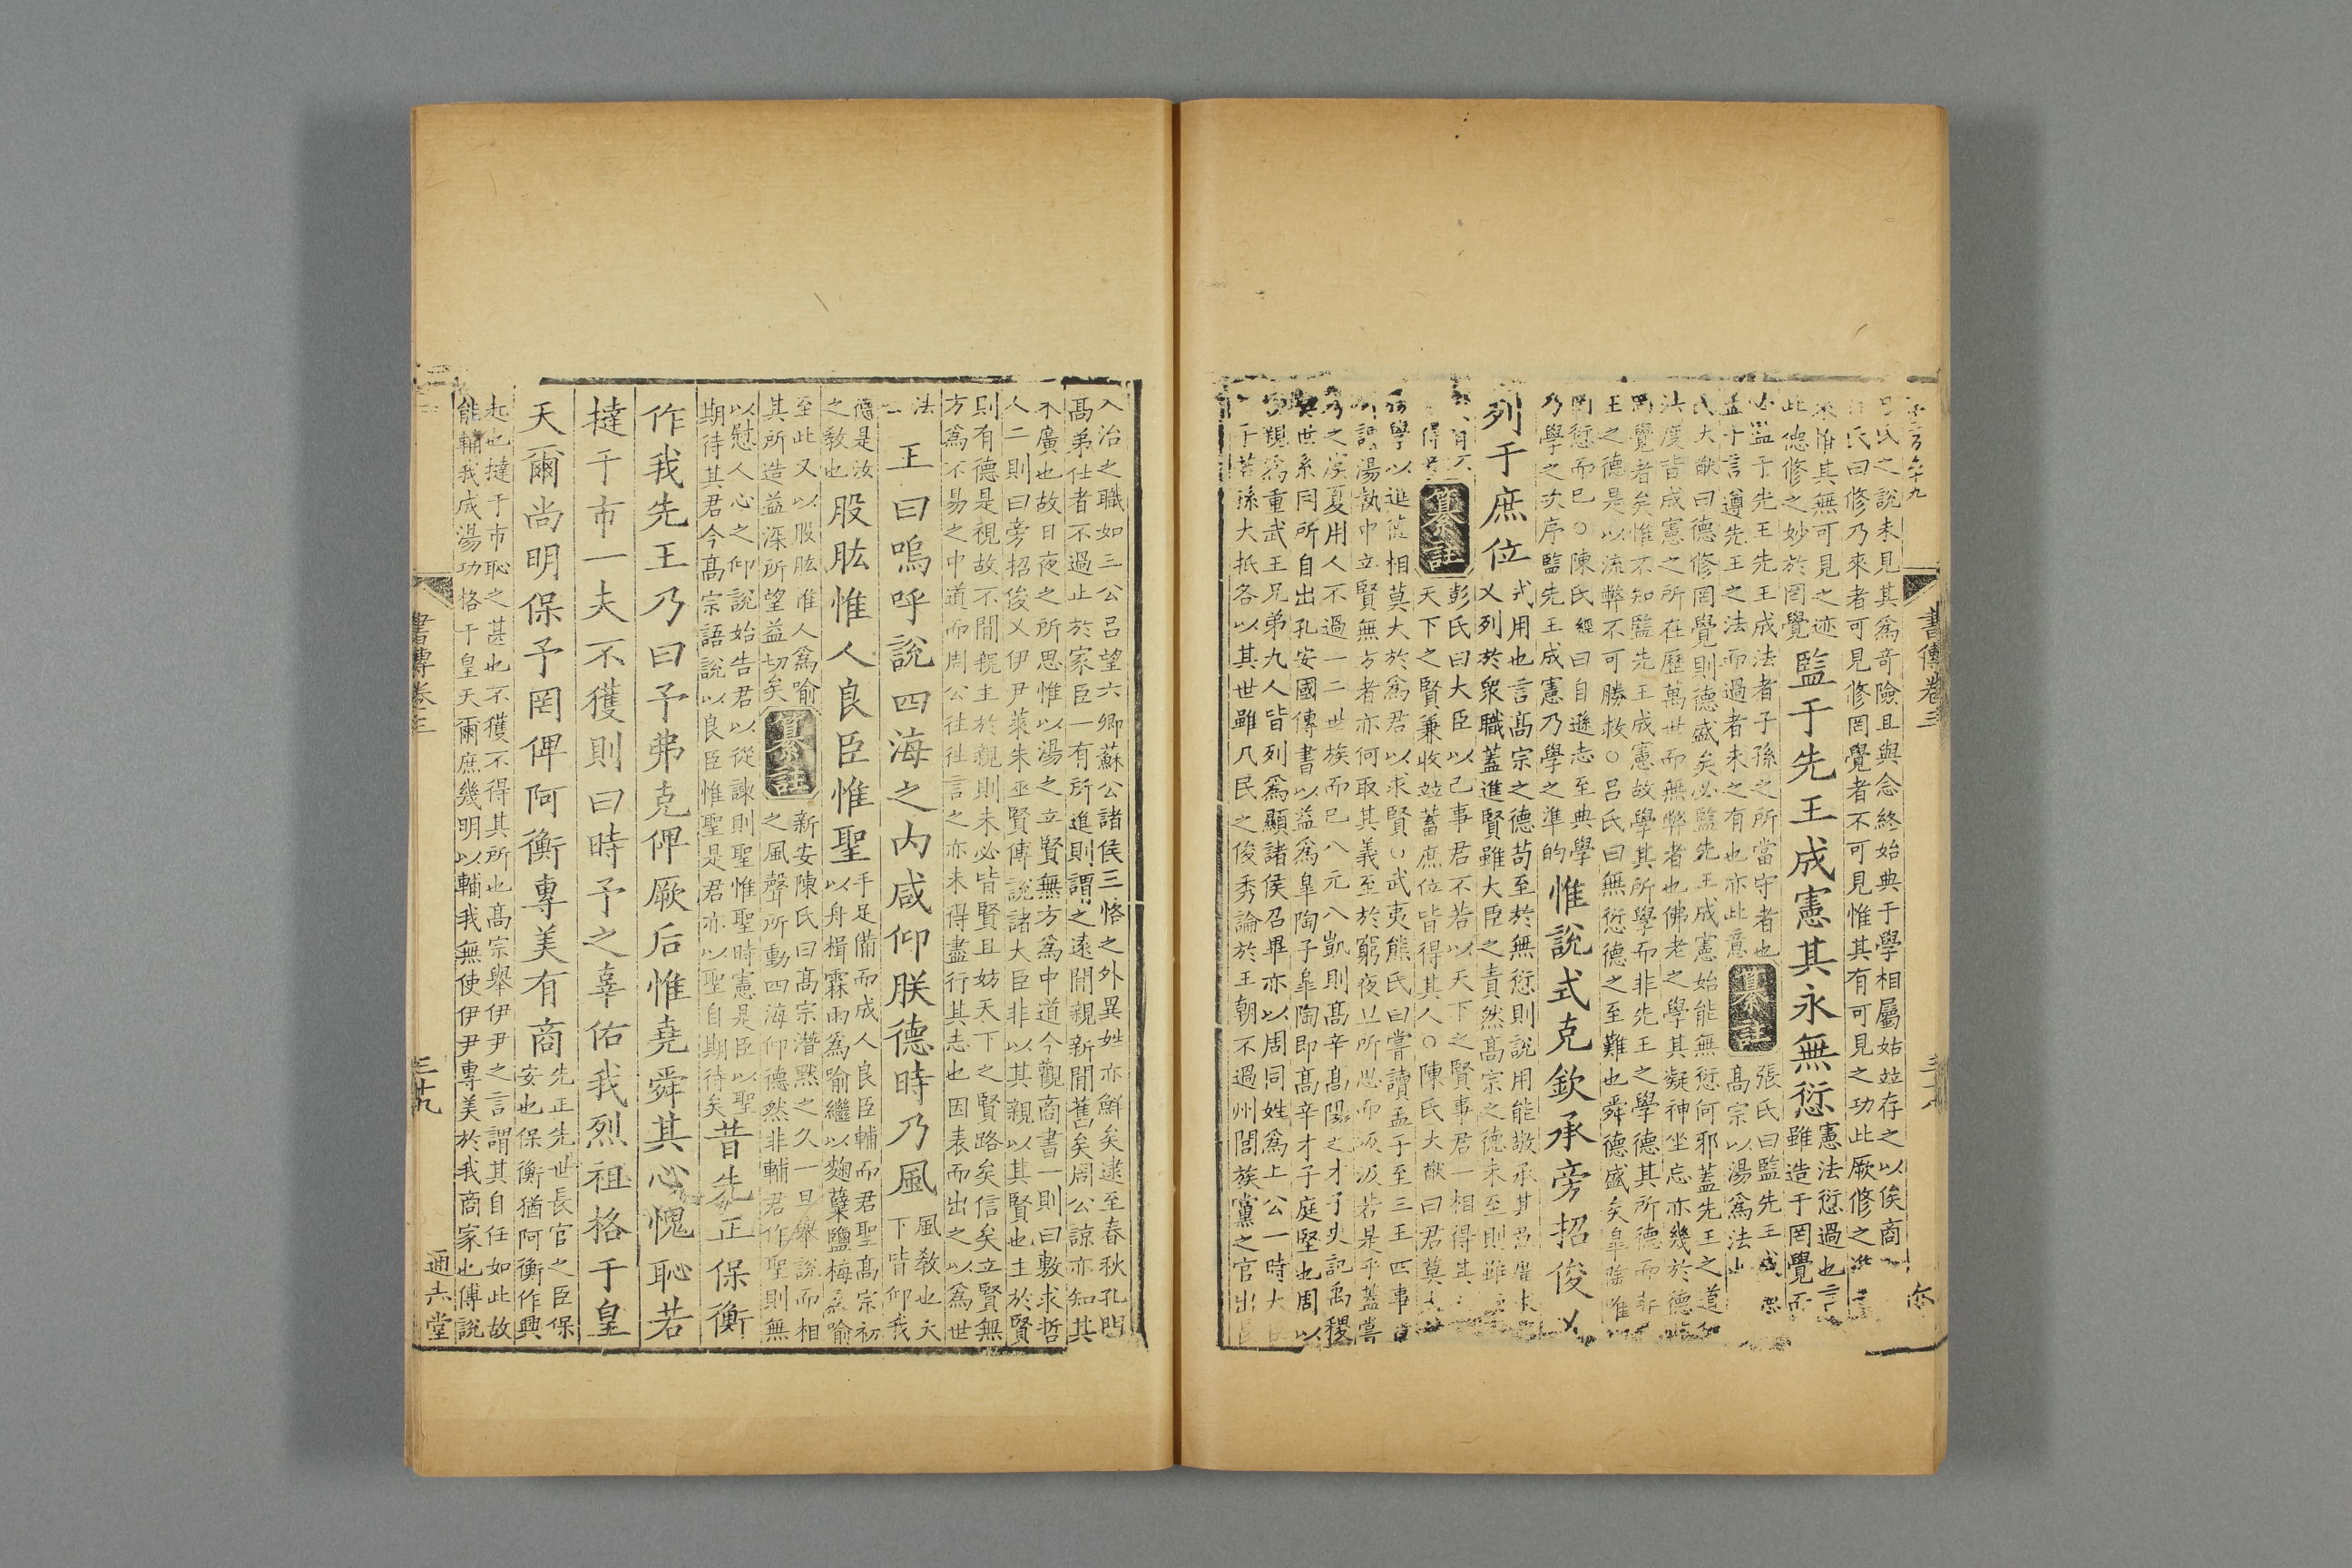 書傳卷三
氏之說未見其爲奇險且與念終始典于學相屬姑竝存之以俟商
氏曰修乃來者可見修罔覺者不可見惟其有可見之功此厥修之
來惟其無可見之迹
此德修之妙於罔覺
監于先王成憲其永無愆
憲法愆過也言
雖造于罔覺而
必監于先王先王成法者子孫之所當守者也
孟子言遵先王之法而過者未之有也亦此意
纂註
張氏曰監先王成憲
高宗以湯爲法
氏大猷曰德修罔覺則德盛矣必監先王成憲始能無愆何耶蓋先王之道
法度皆成憲之所在歷萬世而無弊者也佛老之學其凝神坐忘亦幾於德
罔覺者矣惟不知監先王成憲故學其所學而非先王之學德其所德而非
王之德是以流弊不可勝救○呂氏曰無愆德之至難也舜德盛矣皐陶惟
罔愆而已○陳氏經曰自遜志至典學
乃學之次序監先王成憲乃學之準的
惟說式克欽承旁招俊乂
列于庶位
式用也言高宗之德苟至於無愆則說用能敬承其
乂列於衆職蓋進賢雖大臣之責然高宗之德未至則雖
纂註
彭氏曰大臣以己事君不若以天下之賢事君一相得其
天下之賢兼收竝蓄庶位皆得其人○陳氏大猷曰君莫
學以進德相莫大於爲君以求賢○武夷熊氏曰嘗讀孟子至三王四事
謂湯執中立賢無方者亦何取其義至於窮夜以所思而汲汲若是乎蓋嘗
之虞夏用人不過一二世族而已八元八凱則高辛高陽之才子史記禹稷
世系同所自出孔安國傳書以益爲皐陶子皐陶即高辛才子庭堅也周以
親爲重武王兄弟九人皆列爲顯諸侯召畢亦以周同姓爲上公一時大
子若孫大抵各以其世雖凡民之俊秀論於王朝不過州閭族黨之官出
入治之職如三公呂望六卿蘇公諸侯三恪之外異姓亦鮮矣逮至春秋孔門
高弟仕者不過止於家臣一有所進則謂之遠間親新間舊矣周公諒亦知其
不廣也故日夜之所思惟以湯之立賢無方爲中道今觀商書一則曰敷求哲
人二則曰旁招俊乂伊尹萊朱巫賢傅說諸大臣非以其親以其賢也主於賢
則有德是視故不間親主於親則未必皆賢且妨天下之賢路矣信矣立賢無
方爲不易之中道而周公往往言之亦未得盡行其志也因表而出之以爲世
法
王曰嗚呼說四海之內咸仰朕德時乃風
風教也天
下皆仰我
德是汝
之教也
股肱惟人良臣惟聖
手足備而成人良臣輔而君聖高宗初
以舟楫霖雨爲喻繼以麴糵鹽梅爲喻
至此又以股肱惟人爲喻
其所造益深所望益切矣
纂註
新安陳氏曰高宗潛默之久一旦舉說而相
之風聲所動四海仰德然非輔君作聖則無
以慰人心之仰說始告君以從諫則聖惟聖時憲是臣以聖
期待其君今高宗語說以良臣惟聖是君亦以聖自期待矣
昔先正保衡
作我先王乃曰予弗克俾厥后惟堯舜其心愧恥若
撻于市一夫不獲則曰時予之辜佑我烈祖格于皇
天爾尚明保予罔俾阿衡專美有商
先正先世長官之臣保
安也保衡猶阿衡作興
起也撻于市恥之甚也不獲不得其所也高宗舉伊尹之言謂其自任如此故
能輔我成湯功格于皇天爾庶幾明以輔我無使伊尹專美於我商家也傅說
書傳卷三
三十九
通志堂